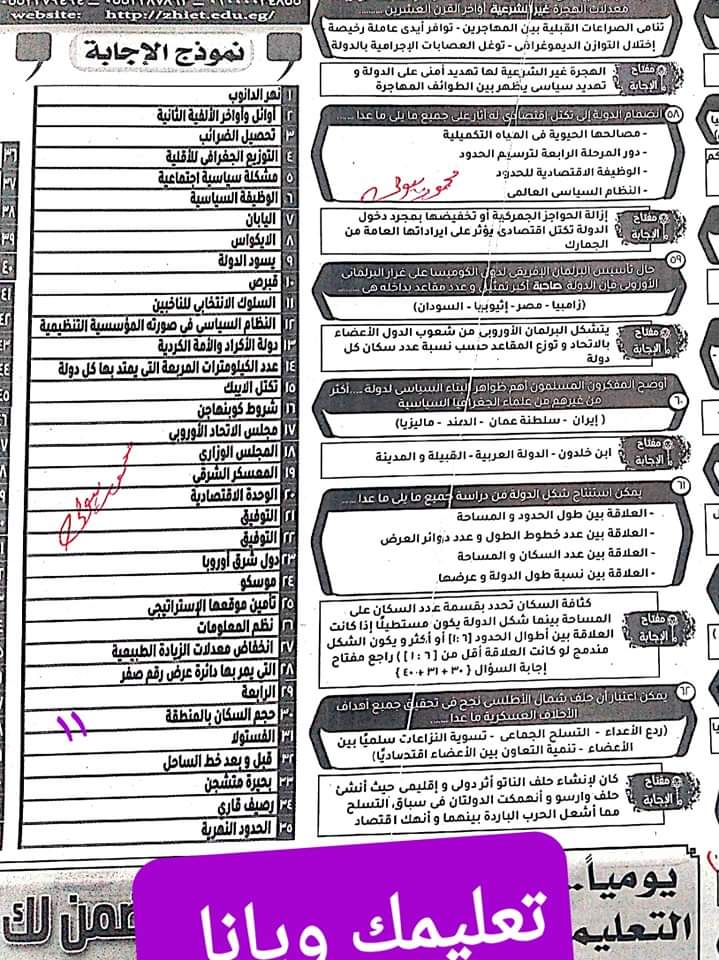 معدلات الهجرة غير الشرعية أواخر القرن العشرين
تنامى الصراعات القبلية بين المهاجرين - توافر أيدى عاملة رخيصة
إختلال التوازن الديموغرافى - توغل العصابات الإجرامية بالدولة
مفتاح الإجابة
الهجرة غير الشرعية لها تهديد أمنى على الدولة و
تهديد سياسى يظهر بين الطوائف المهاجرة
٥٨ إنضمام الدولة إلى تكتل إقتصادى له آثار على جميع ما يلى ما عدا .....
- مصالحها الحيوية فى المياه التكميلية
- دور المرحلة الرابعة لترسيم الحدود
- الوظيفة الاقتصادية للحدود
- النظام السياسى العالمى
مفتاح الإجابة
إزالة الحواجز الجمركية أو تخفيضها بمجرد دخول
الدولة تكتل اقتصادى يؤثر على ايراداتها العامة من
الجمارك
٥٩ حال تأسيس البرلمان الإفريقى لدول الكوميسا على غرار البرلمانى
الأوروبى فإن الدولة صاحبة أكبر تمثيل و عدد مقاعد بداخله هى .....
(زامبيا - مصر - إثيوبيا - السودان)
مفتاح الإجابة
يتشكل البرلمان الأوروبى من شعوب الدول الأعضاء
بالاتحاد و توزع المقاعد حسب نسبة عدد سكان كل
دولة
٦٠ أوضح المفكرون المسلمون أهم ظواهر البناء السياسى لدولة ..... أكثر
من غيرهم من علماء الجغرافيا السياسية
( إيران - سلطنة عمان - الهند - ماليزيا)
مفتاح الإجابة
ابن خلدون - الدولة العربية - القبيلة و المدينة
٦١ يمكن استنتاج شكل الدولة من دراسة جميع ما يلى ما عدا .....
- العلاقة بين طول الحدود و المساحة
- العلاقة بين عدد خطوط الطول و عدد دوائر العرض
- العلاقة بين عدد السكان و المساحة
- العلاقة بين نسبة طول الدولة و عرضها
مفتاح الإجابة
كثافة السكان تحدد بقسمة عدد السكان على
المساحة بينما شكل الدولة يكون مستطيلًا إذا كانت
العلاقة بين أطوال الحدود [٦:١] أو أكثر و يكون الشكل
مندمج لو كانت العلاقة أقل من [٦ : ١] ) راجع مفتاح
إجابة السؤال (٣٠ + ٣١ + ٤٠)
٦٢ يمكن اعتبار أن حلف شمال الأطلسى نجح فى تحقيق جميع أهداف
الأحلاف العسكرية ما عدا .....
(ردع الأعداء - التسلح الجماعى - تسوية النزاعات سلميًا بين
الأعضاء - تنمية التعاون بين الأعضاء اقتصاديًا)
مفتاح الإجابة
كان لإنشاء حلف الناتو أثر دولى و إقليمى حيث أنشئ
حلف وارسو و أنهمكت الدولتان فى سباق التسلح
مما أشعل الحرب الباردة بينهما و أنهك اقتصاد
website: http://zhiet.edu.eg/
نموذج الإجابة
١ نهر الدانوب
٢ أوائل وأواخر الألفية الثانية
٣ تحصيل الضرائب
٤ التوزيع الجغرافى للأقلية
٥ مشكلة سياسية إجتماعية
٦ الوظيفة السياسية
٧ اليابان
٨ الايكواس
٩ يسود الدولة
١٠ قبرص
١١ السلوك الانتخابي للناخبين
١٢ النظام السياسى فى صورته المؤسسية التنظيمية
١٣ دولة الأكراد والأمة الكردية
١٤ عدد الكيلومترات المربعة التى يمتد بها كل دولة
١٥ تكتل الايبك
١٦ شروط كوبنهاجن
١٧ مجلس الاتحاد الأوروبى
١٨ المجلس الوزارى
١٩ المعسكر الشرقى
٢٠ الوحدة الاقتصادية
٢١ التوفيق
٢٢ التوفيق
٢٣ دول شرق أوروبا
٢٤ موسكو
٢٥ تأمين موقعها الإستراتيجى
٢٦ نظم المعلومات
٢٧ انخفاض معدلات الزيادة الطبيعية
٢٨ التى يمر بها دائرة عرض رقم صفر
٢٩ الرابعة
٣٠ حجم السكان بالمنطقة
٣١ الفستولا
٣٢ قبل و بعد خط الساحل
٣٣ بحيرة متشجن
٣٤ رصيف قاري
٣٥ الحدود النهرية
١١
يومياً..
التعليم
تعليمك ويانا